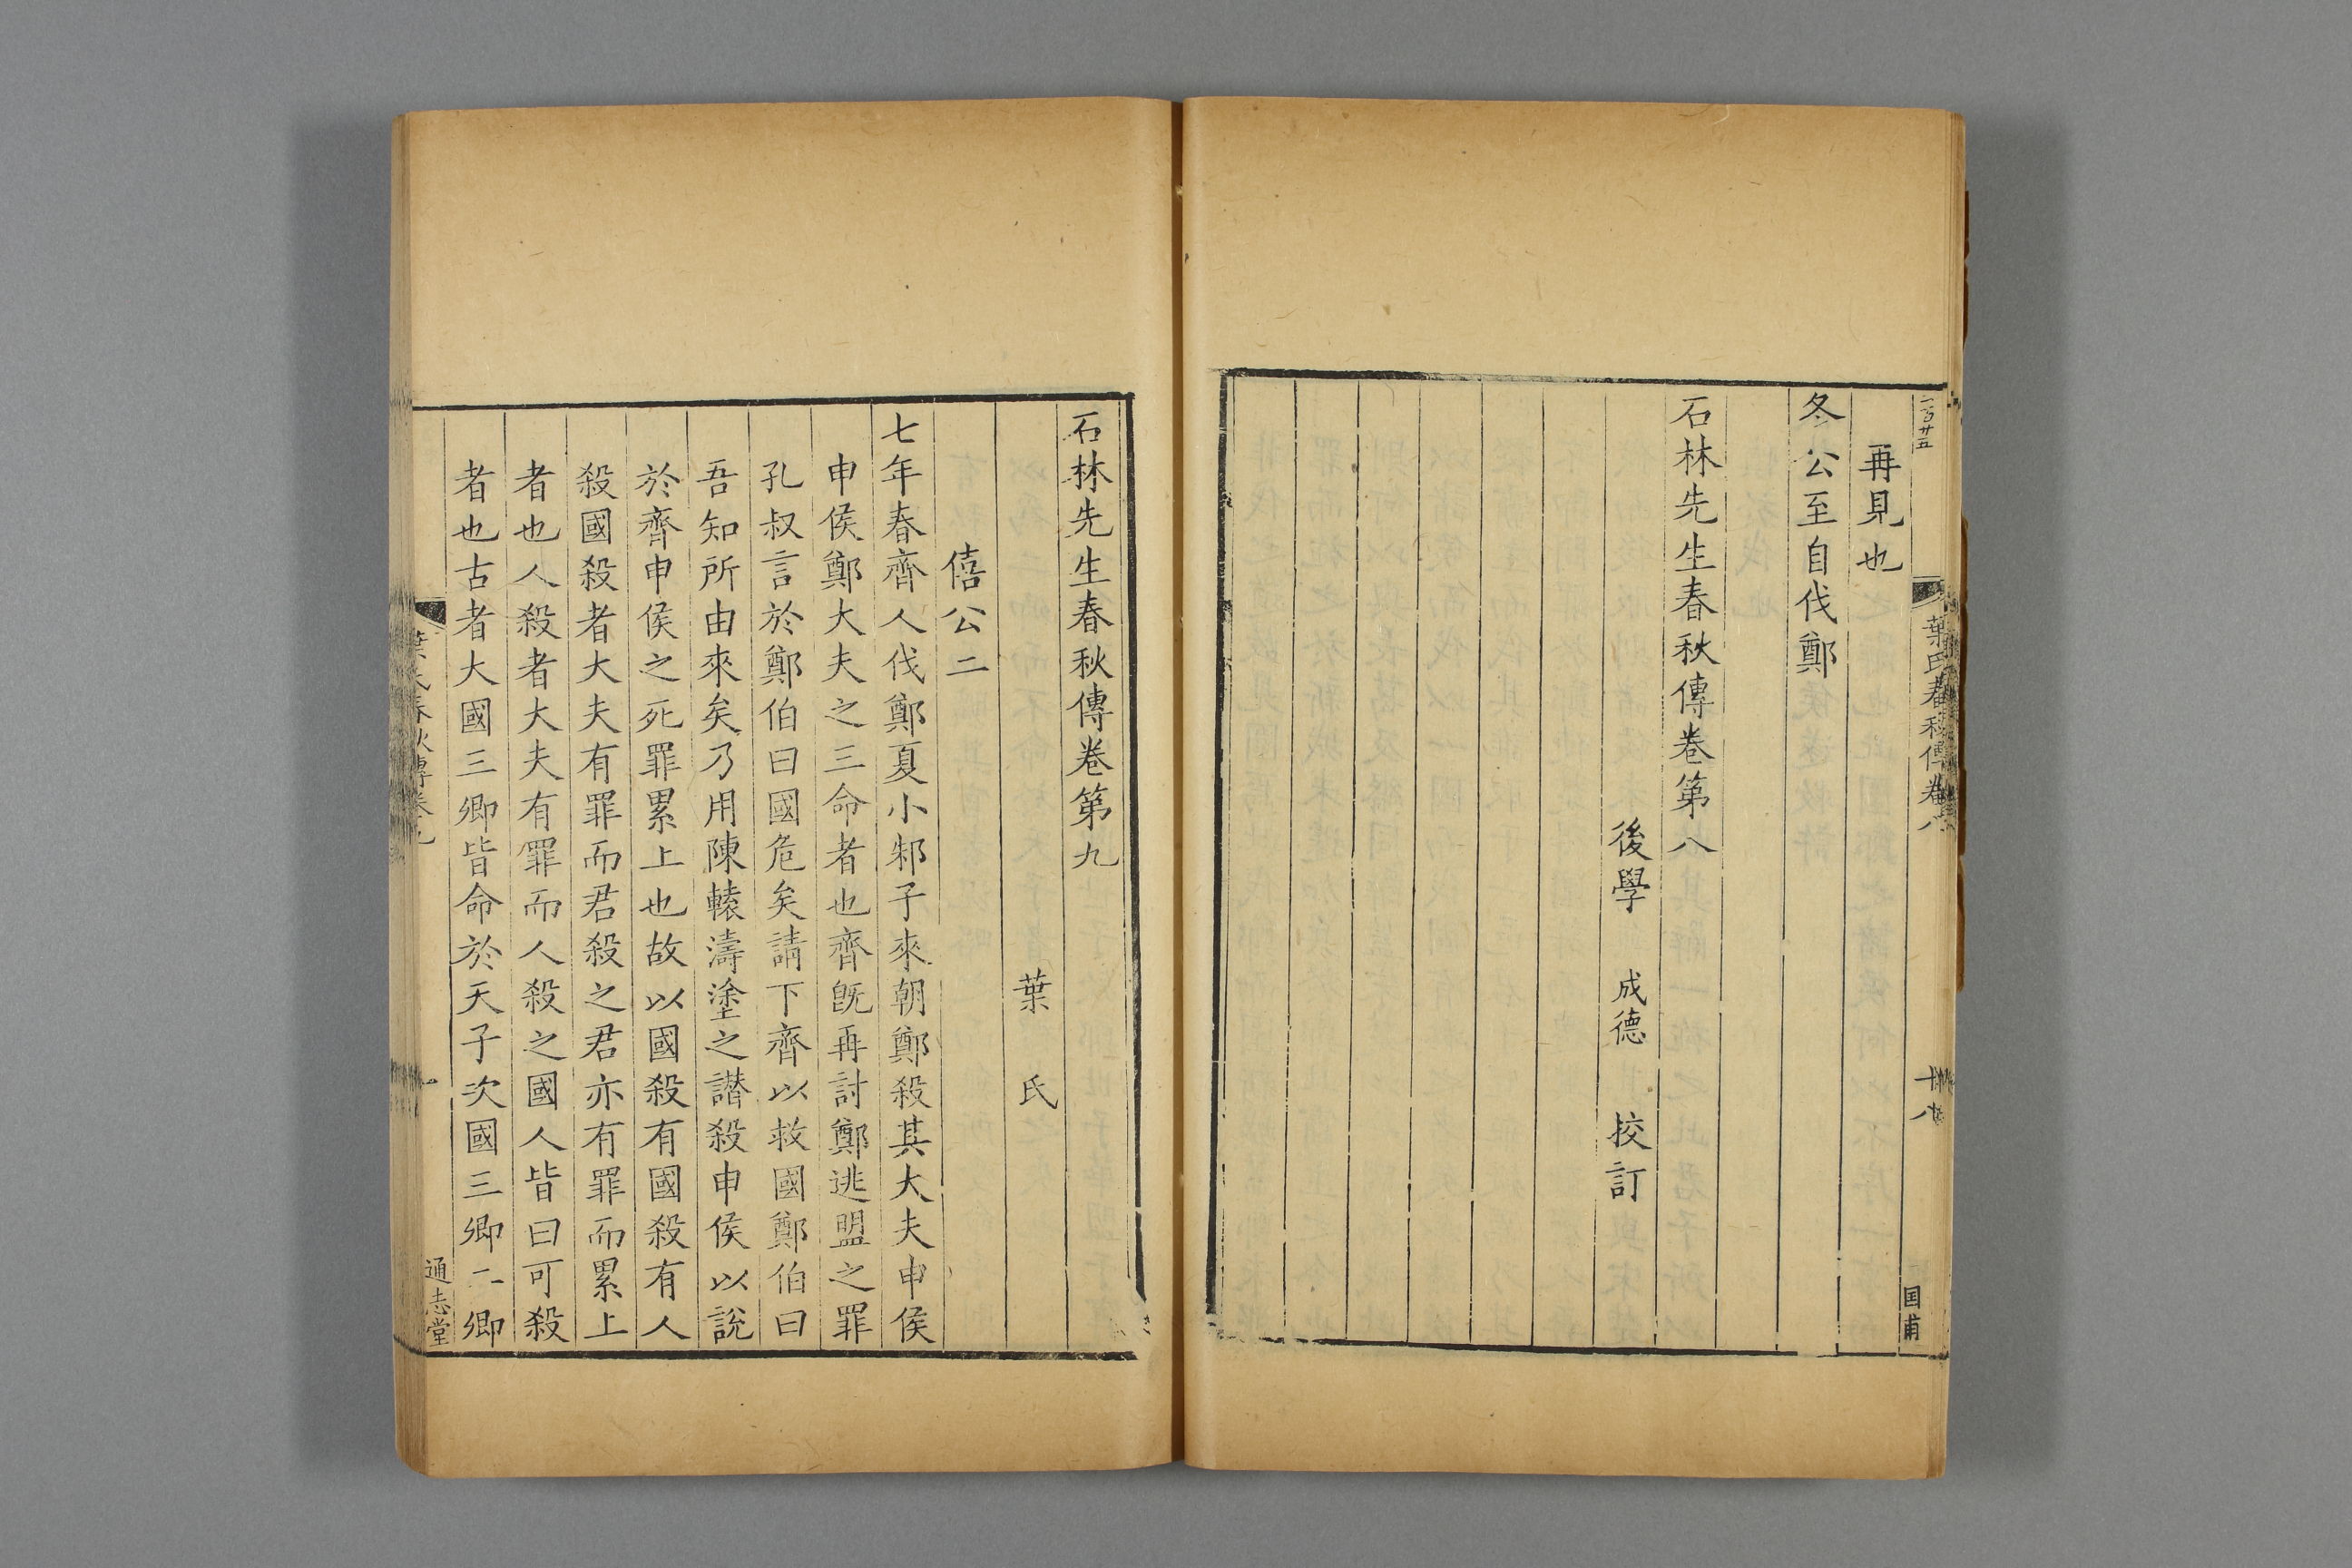 一百廿五
葉氏春秋傳卷八
十八
国甫
再見也
冬公至自伐鄭
石林先生春秋傳卷第八
後學 成德 挍訂
石林先生春秋傳卷第九
葉 氏
僖公二
七年春齊人伐鄭夏小邾子來朝鄭殺其大夫申侯
申侯鄭大夫之三命者也齊旣再討鄭逃盟之罪
孔叔言於鄭伯曰國危矣請下齊以救國鄭伯曰
吾知所由來矣乃用陳轅濤塗之譖殺申侯以說
於齊申侯之死罪累上也故以國殺有國殺有人
殺國殺者大夫有罪而君殺之君亦有罪而累上
者也人殺者大夫有罪而人殺之國人皆曰可殺
者也古者大國三卿皆命於天子次國三卿二卿
葉氏春秋傳卷九
一
通志堂